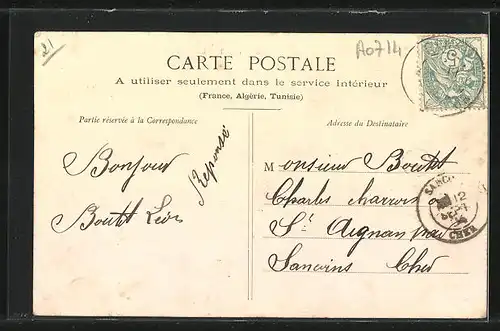 21
A0714
CARTE POSTALE
A utiliser seulement dans le service intérieur
(France, Algérie, Tunisie)
Partie réservée à la Correspondance
Adresse du Destinataire
Réponse
Bonjour
Boutet Léon
Monsieur Boutet
Charles charron à
St Aignan par
Sancoins Cher
12
CHER